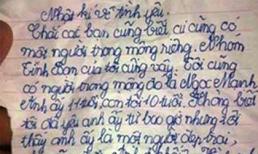 Nhật kí về tình yêu.
Thật các bạn cũng biết cứ cũng có
một người trong mộng riêng. Nhóm
bạn của tôi cũng vậy. Tôi cũng
có người trong mộng đó là Ngọc Mạnh
anh ấy 11 tuổi, con tôi 10 tuổi. Không biết
tôi đã yêu anh ấy từ bao giờ nhưng tôi
thấy anh ấy là một người đẹp trai,